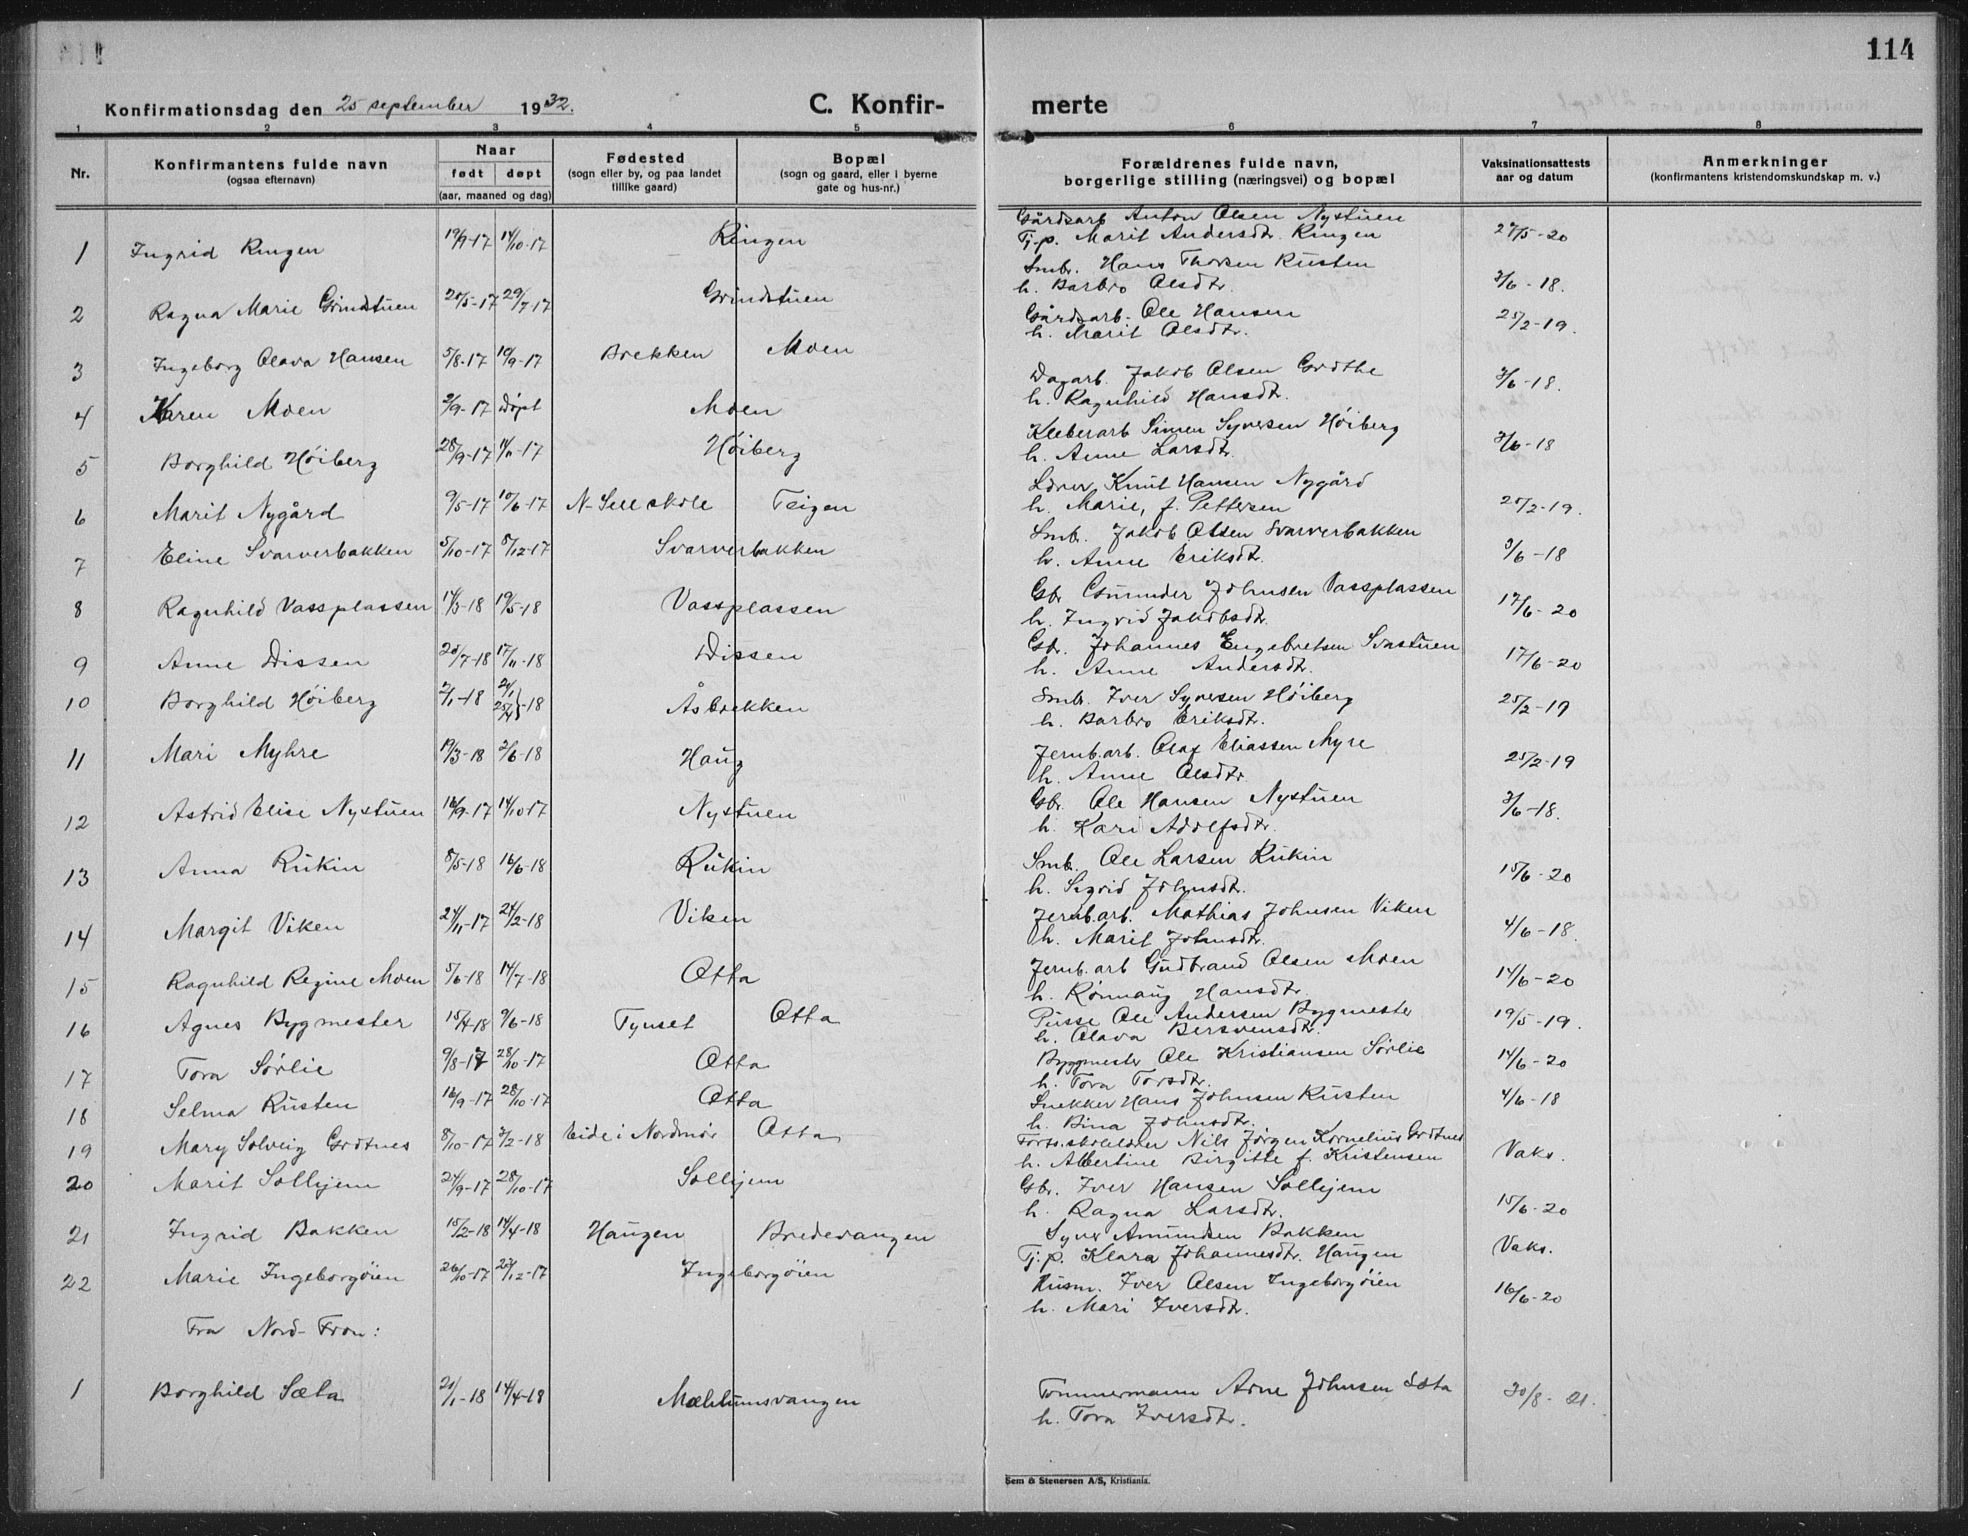 114
Konfirmationsdag den 25 september 1932. C. Konfir- merte
1 2 3 4 5 6 7 8
Nr. Konfirmantens fulde navn (ogsaa efternavn) Naar født døpt (aar, maaned og dag) Fødested (sogn eller by, og paa landet tillike gaard) Bopæl (sogn og gaard, eller i byerne gate og hus-nr.) Forældrenes fulde navn, borgerlige stilling (næringsvei) og bopæl Vaksinationsattests aar og datum Anmerkninger (konfirmantens kristendomskundskap m. v.)
1 Ingrid Ringen 19/9-17 14/10-17 Ringen Gårdsarb Anton Olsen Nystuen
Tj.p. Marit Andersdtr. Ringen 27/5-20
2 Ragna Marie Grindstuen 20/5-17 29/7 17 Grindstuen Smbr. Hans Thorsen Rusten
h. Barbro Olsdtr. 3/6-18.
3 Ingeborg Olava Hansen 5/8-17 10/9-17 Brekken Moen Gårdsarb. Ole Hansen
h. Marit Olsdtr. 25/2-19.
4 Karen Moen 2/9-17 døpt Moen Dagarb. Jakob Olsen Grothe
h. Ragnhild Hansdtr. 3/6-18.
5 Borghild Høiberg 28/9-17 14/11-17 Høiberg Kleberarb Simen Syversen Høiberg
h. Anne Larsdtr. 3/6-18
6 Marit Nygård 9/5-17 10/6-17 N-Sell skole Teigen Lærer Knut Hansen Nygård
h. Marie, f. Pettersen 25/2-19.
7 Eline Svarverbakken 5/10-17 8/12-17 Svarverbakken Smb. Jakob Olsen Svarverbakken
h. Anne Eriksdtr. 3/6-18
8 Ragnhild Vassplassen 14/3-18 19/5-18 Vassplassen Gbr. Gunnder Johnsen Vassplassen
h. Ingrid Jakobsdtr. 17/6-20
9 Anne Dissen 20/7-18 17/11-18 Dissen Gbr. Johannes Engebretsen Svastuen
h. Anne Andersdtr. 17/6-20
10 Borghild Høiberg 2/1-18 21/1 25/4}-18 Åsbrekken Smb. Iver Syversen Høiberg
h. Barbro Eriksdtr. 25/2-19
11 Mari Myhre 19/3-18 2/6-18 Haug Jernb.arb. Olaf Eliassen Myre
h. Anne Olsdtr. 25/2-19
12 Astrid Elise Nystuen 16/9-17 14/10-17 Nystuen Gbr. Ole Hansen Nystuen
h. Kari Adolfsdtr. 3/6-18.
13 Anna Rukin 8/5-18 16/6-18 Rukin Smb. Ole Larsen Rukin
h. Sigrid Johnsdtr. 15/6-20
14 Margit Viken 24/11-17 24/2-18 Viken Jernb.arb. Mathias Johnsen Viken
h. Marit Johnsdtr. 4/6-18.
15 Ragnhild Regine Moen 5/6-18 14/7-18 Otta Jernb.arb Gudbrand Olsen Moen
h. Rønnaug Hansdtr. 14/6-20
16 Agnes Bygmester 15/4-18 9/6-18 Tynset Otta Pusse Ole Andersen Bygmester
h. Olava Bersvensdtr. 19/5-19.
17 Tora Sørlie 9/8-17 28/10-17 Otta Byggmester Ole Kristiansen Sørlie
h. Tora Torsdtr. 14/6-20
18 Selma Rusten 16/9-17 28/10-17 Otta Snekker Hans Johnsen Rusten
h. Bina Johnsdtr. 4/6-18
19 Mary Solveig Grotnes 8/10-17 3/2-18 Eide i Nordmør Otta Forts.skolelærer Nils Jørgen Kornelius Grotnes
h. Albertine Birgitte f. Kristensen Vaks.
20 Marit Solhjem 24/9-17 28/10-17 Solhjem Gbr. Iver Hansen Solhjem
h. Ragna Larsdtr. 15/6-20
21 Ingrid Bakken 15/2-18 14/4-18 Haugen Bredevangen Syver Amundsen Bakken
Tj.p. Klara Johannesdtr. Haugen Vaks.
22 Marie Ingeborgøien 26/10-17 27/12-17 Ingeborgøien Husm. Iver Olsen Ingeborgøien
h. Mari Iversdtr. 16/6-20
Fra Nord-Fron:
1 Borghild Sæta 20/1-18 14/4-18 Mæhlumsvangen Tømmermann Arne Johnsen Sæta
h. Tora Iversdtr. 30/8-21.
Sem & Stenersen A/S, Kristiania.